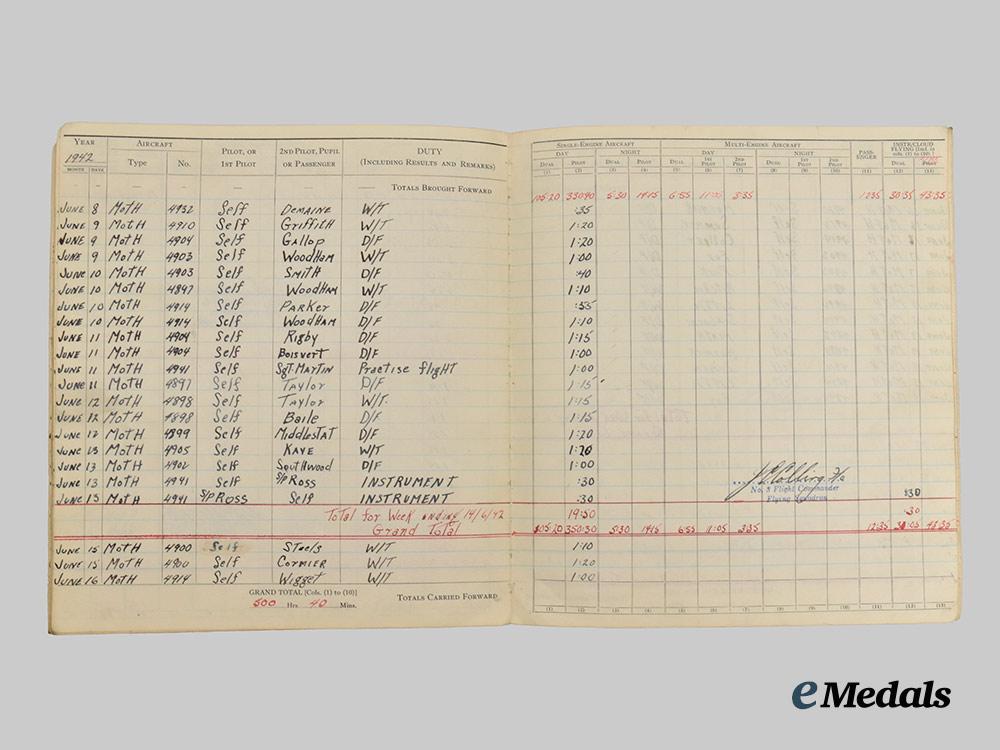 YEAR AIRCRAFT PILOT, OR 2ND PILOT, PUPIL DUTY SINGLE-ENGINE AIRCRAFT MULTI-ENGINE AIRCRAFT PASS- INSTR/CLOUD
1942 Type No. 1ST PILOT OR PASSENGER (INCLUDING RESULTS AND REMARKS) DAY NIGHT DAY NIGHT ENGER FLYING [Incl. in cols. (1) to (10)]
MONTH DATE DUAL PILOT DUAL PILOT DUAL 1ST PILOT 2ND PILOT DUAL 1ST PILOT 2ND PILOT DUAL PILOT
(1) (2) (3) (4) (5) (6) (7) (8) (9) (10) (11) (12) (13)
— — — — — — TOTALS BROUGHT FORWARD 105:20 5:30 19:15 6:55 3:35 12:35 30:35 43:35
JUNE 8 MOTH 4932 Self DEMAINE W/T :35
JUNE 9 MOTH 4910 Self Griffith W/T 1:20
JUNE 9 MOTH 4904 Self GALLOP D/F 1:20
JUNE 9 MOTH 4903 Self WOODHAM W/T 1:00
JUNE 10 MOTH 4903 Self SMITH D/F :40
JUNE 10 MOTH 4897 Self WOODHAM W/T 1:10
JUNE 10 MOTH 4914 Self PARKER D/F :55
JUNE 10 MOTH 4914 Self WOODHAM D/F 1:10
JUNE 11 MOTH 4904 Self Rigby D/F 1:15
JUNE 11 MOTH 4904 Self BOISVERT D/F 1:00
JUNE 11 MOTH 4941 Self SGT. MARTIN Practise flight 1:00
JUNE 11 MOTH 4897 Self TAYLOR D/F 1:15
JUNE 12 MOTH 4898 Self TAYLOR W/T 1:15
JUNE 12 MOTH 4898 Self Baile D/F 1:15
JUNE 12 MOTH 4899 Self D/F 1:20
JUNE 13 MOTH 4905 Self KAYE W/T 1:20
JUNE 13 MOTH 4902 Self Southwood D/F 1:00
JUNE 13 MOTH 4941 Self S/P ROSS INSTRUMENT :30
No. 3 Flight Commander
JUNE 13 MOTH 4941 S/P ROSS Self INSTRUMENT :30 :30
Flying Squadron
Total for Week ending 14/6/42 19:50 :30
Grand Total 105:20 350:30 5:30 19:15 6:55 11:05 3:35 12:35 31:05 43:35
JUNE 15 MOTH 4900 Self W/T 1:10
JUNE 15 MOTH 4900 Self CORMIER W/T 1:20
JUNE 16 MOTH 4914 Self Wigget W/T 1:00
GRAND TOTAL [Cols. (1) to (10)]
500 Hrs. 40 Mins. TOTALS CARRIED FORWARD
(1) (2) (3) (4) (5) (6) (7) (8) (9) (10) (11) (12) (13)
eMedals